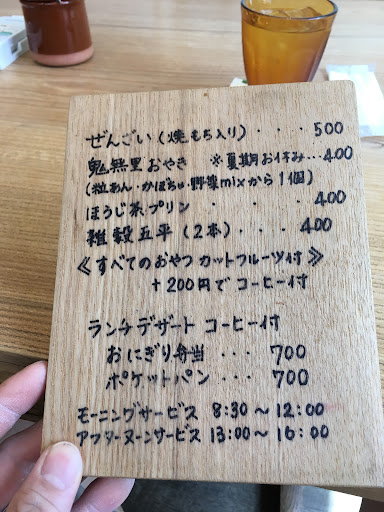 ぜんざい（焼もち入り）・・・500
鬼無里おやき ※夏期お休み…400
（粒あん・かぼちゃ・野菜mixから1個）
ほうじ茶プリン・・・400
雑穀五平（2本）・・・400
《すべてのおやつ カットフルーツ付》
+200円で コーヒー付
ランチデザート コーヒー付
おにぎり弁当・・・700
ポケットパン・・・700
モーニングサービス 8:30～12:00
アフターヌーンサービス 13:00～16:00